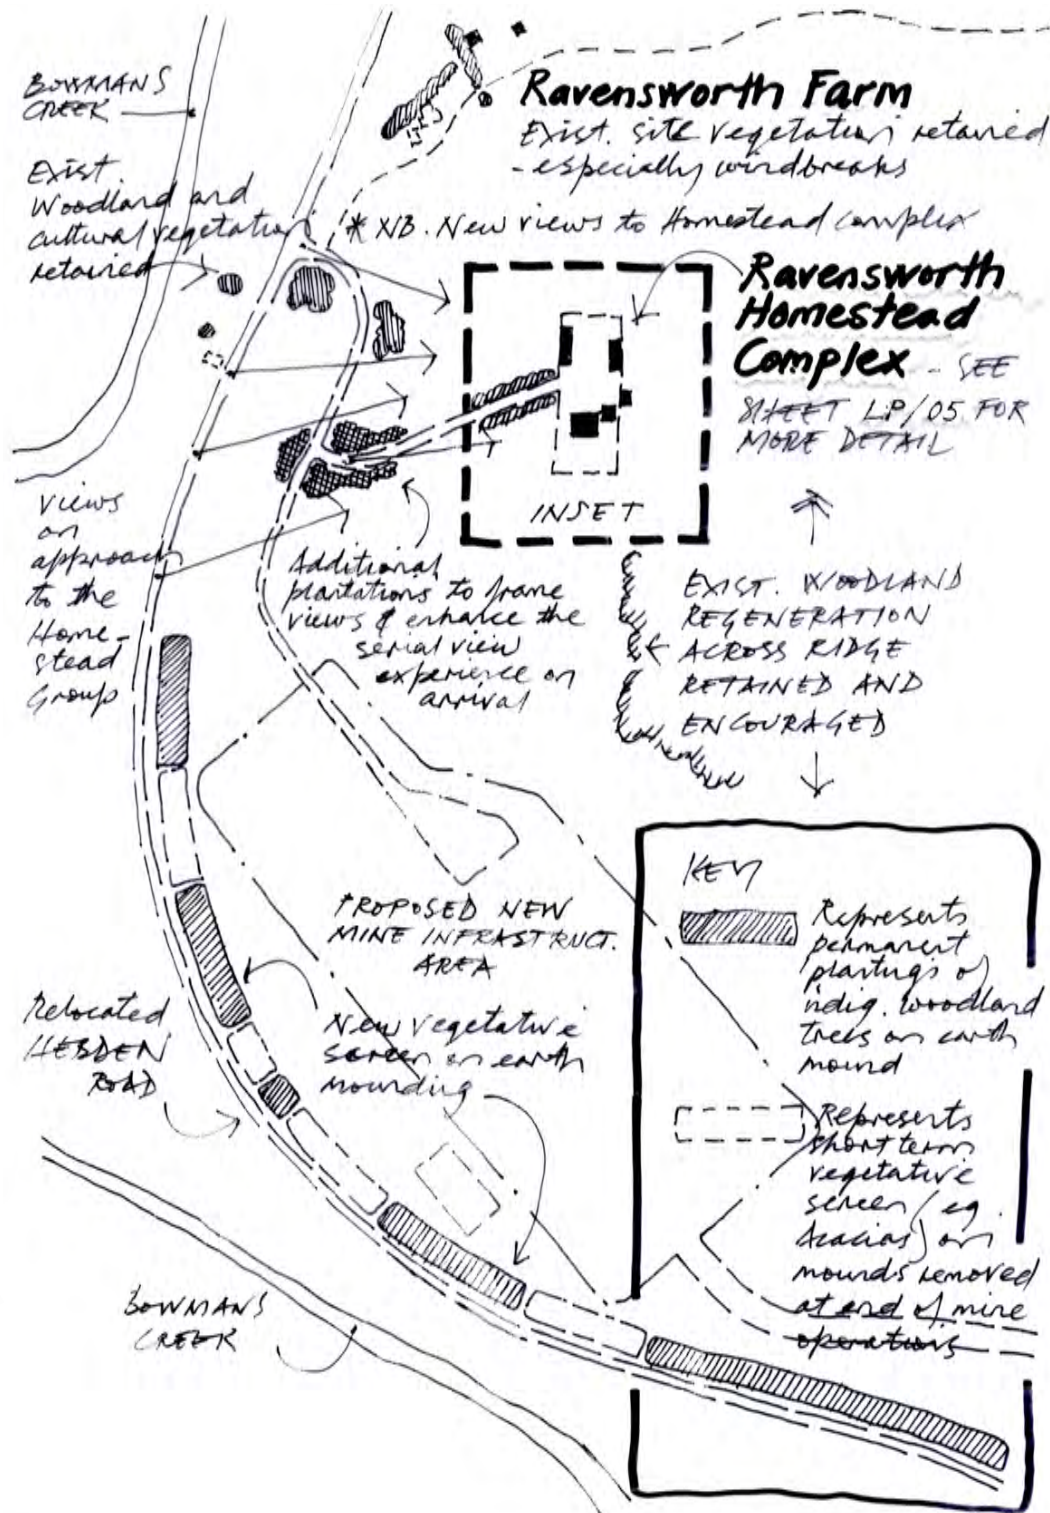 BOWMANS
CREEK
Ravensworth Farm
Exist. site vegetation retained
- especially windbreaks
Exist.
Woodland and
cultural vegetation
retained
* NB. New views to Homestead complex
Ravensworth
Homestead
Complex - SEE
SHEET LP/05 FOR
MORE DETAIL
INSET
Views
on
approach
to the
Home-
stead
Group
Additional
plantations to frame
views & enhance the
serial view
experience on
arrival
EXIST. WOODLAND
REGENERATION
ACROSS RIDGE
RETAINED AND
ENCOURAGED
PROPOSED NEW
MINE INFRASTRUCT.
AREA
Relocated
HEBDEN
ROAD
New vegetative
screen on earth
mounding
BOWMANS
CREEK
KEY
Represents
permanent
plantings of
indig. woodland
trees on earth
mound
Represents
short term
vegetative
screen (eg.
Acacias) on
mounds removed
at end of mine
operations